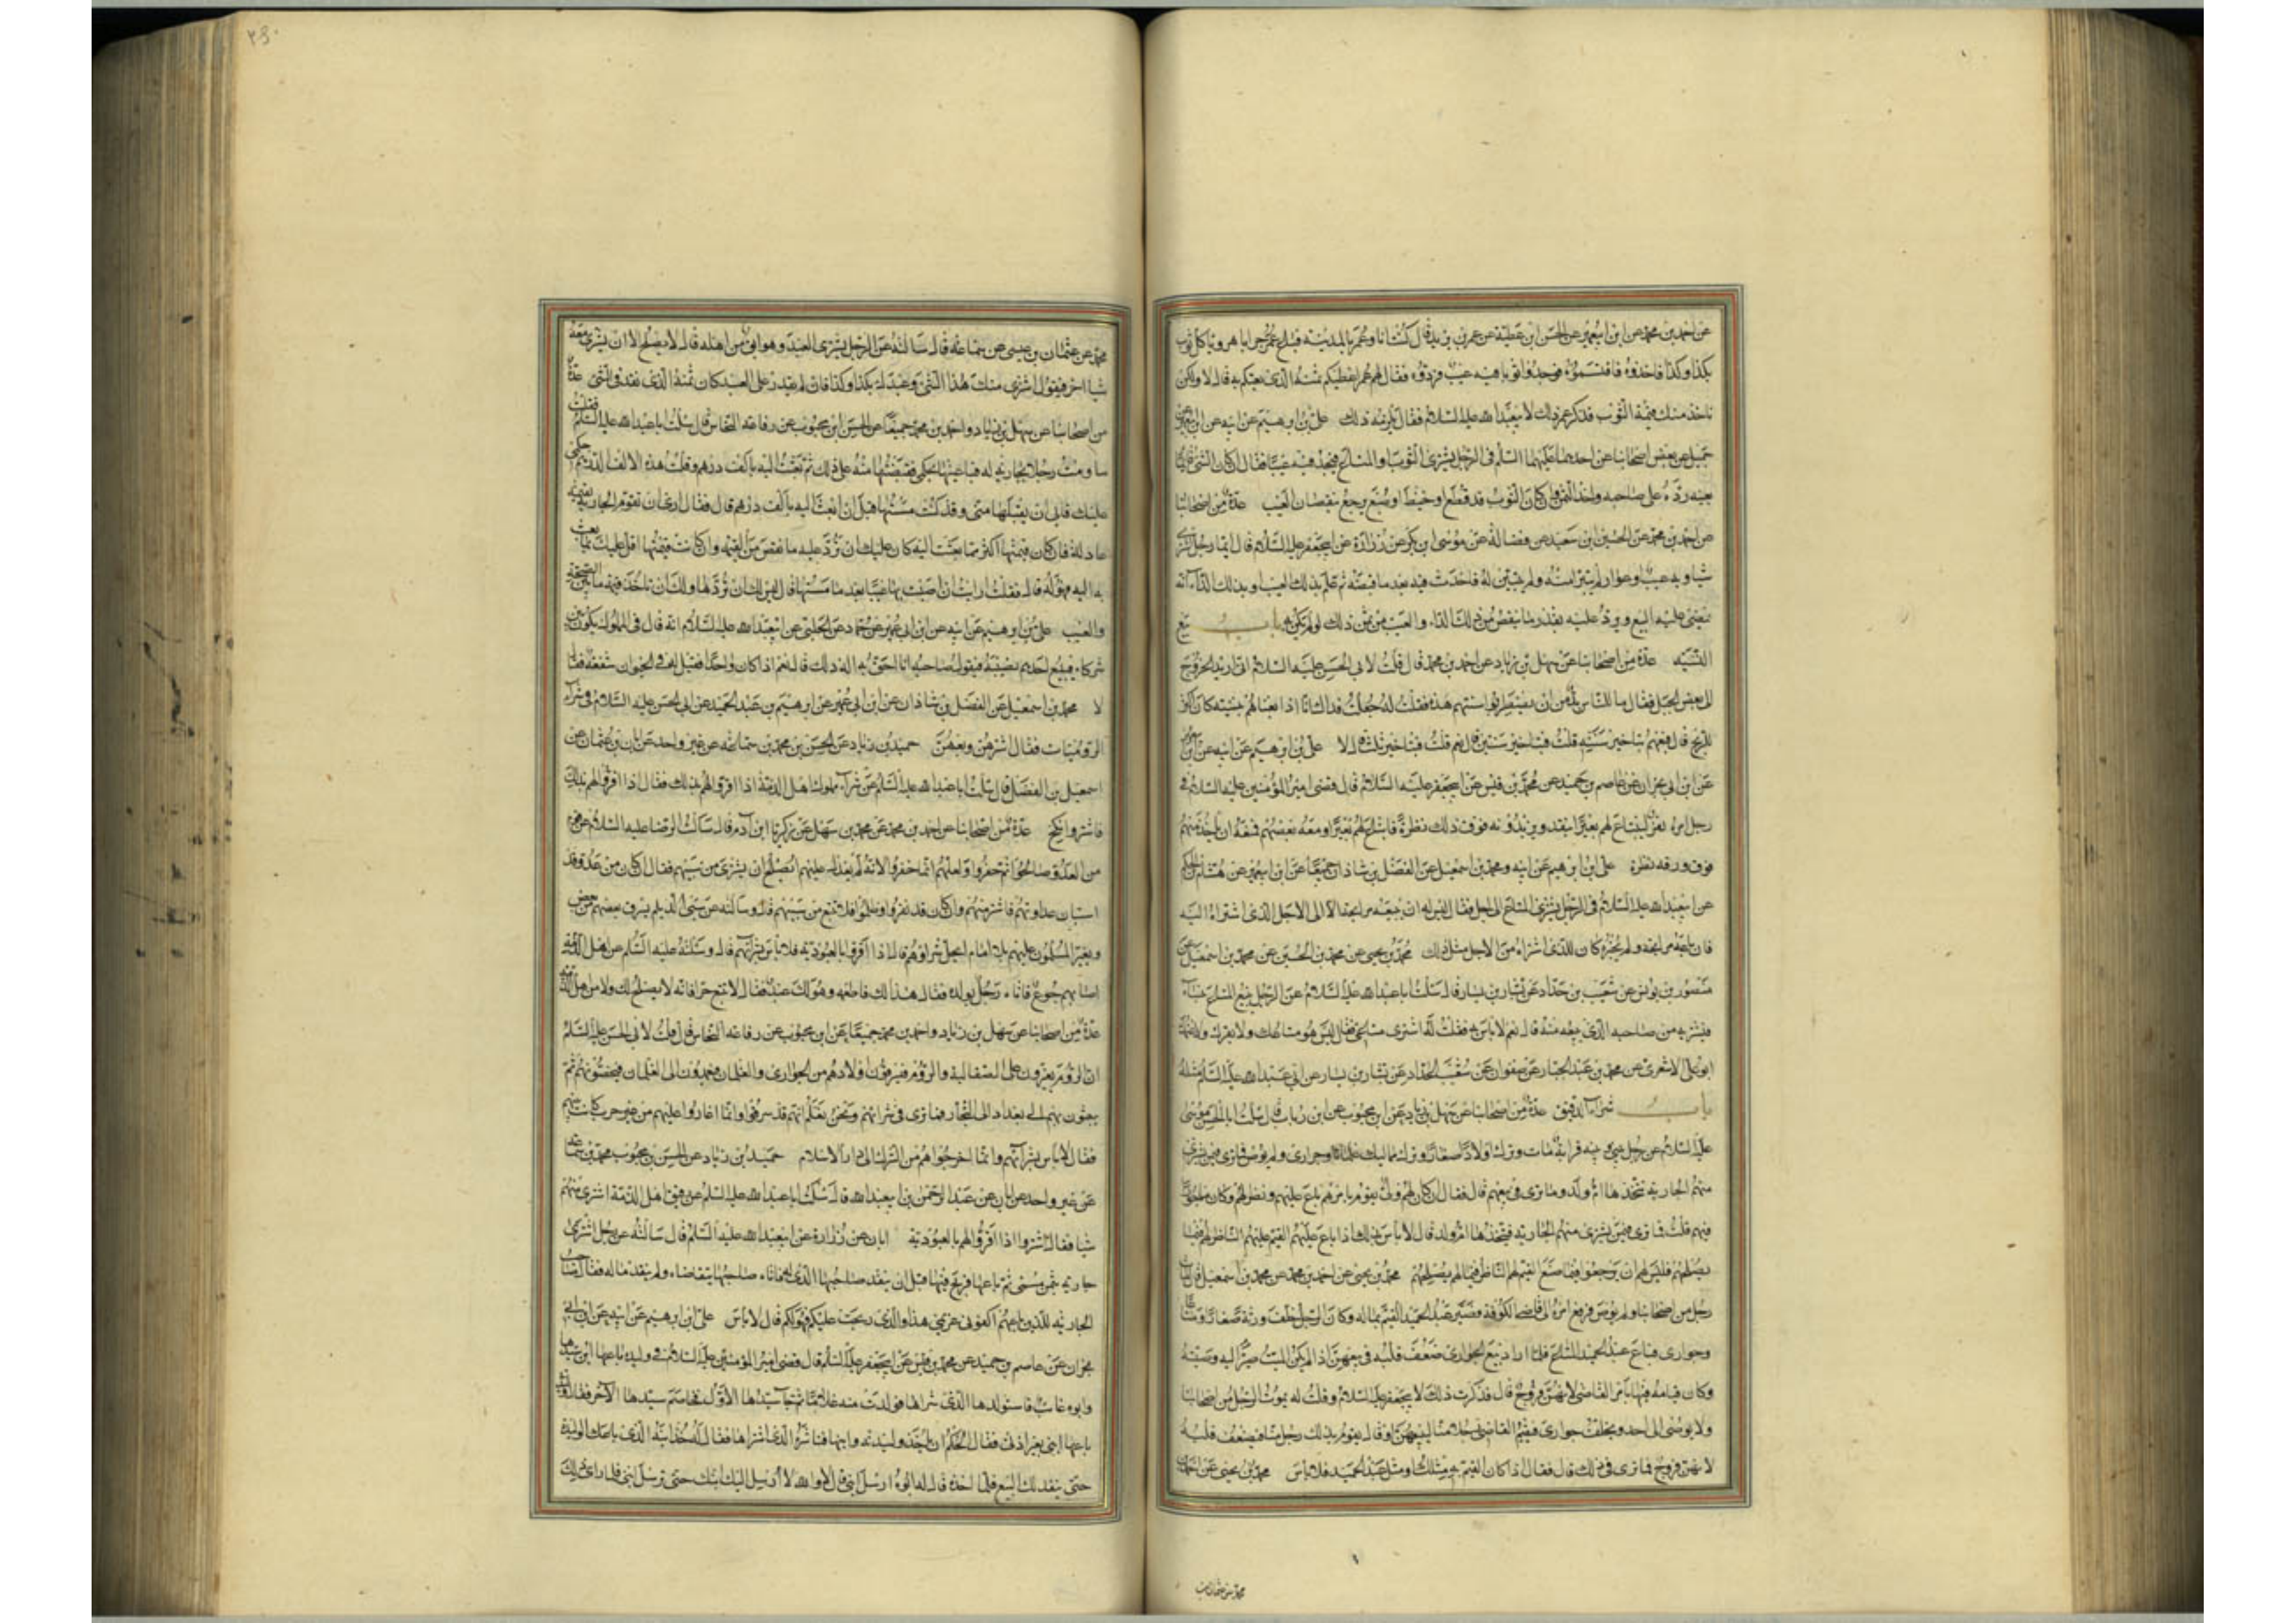 عن احمد بن محمد عن ابن ابيعمير عن الحسن ابن عطية عن عمر بن يزيد قال كنت انا وعمر بالمدينة فباع عمر جرابا هرويا كل ثوب
بكذا وكذا فاخذوه فاقتسموه فوجدوا ثوبا فيه عيب فردوه فقال لهم عمر اعطيكم ثمنه الذى بعتكم به قال لا ولكن
ناخذ منك قيمة الثوب فذكر عمر ذلك لابيعبد الله عليه السلام فقال يلزمه ذلك على بن ابرهيم عن ابيه عن ابن ابيعمير عن
جميل عن بعض اصحابنا عن احدهما عليهما السلم فى الرجل يشترى الثوب او المتاع فيجد فيه عيبا فقال ان كان الشئ قايما
بعينه رده على صاحبه واخذ الثمن وان كان الثوب قد قطع او خيط او صبغ يرجع بنقصان العيب عدة من اصحابنا
عن احمد بن محمد عن الحسين ابن سعيد عن فضالة عن موسى ابن بكر عن زرارة عن ابيجعفر عليه السلام قال ايما رجل اشترى
شيا وبه عيب او عوار لم يتبرا منه ولم يتبين له فاحدث فيه بعد ما قبضه ثم علم بذلك العيب او بذلك الداء انه
يمضى عليه البيع ويرد عليه بقدر ما ينقص من ذلك الداء والعيب من ثمن ذلك لو لم يكن به باب بيع
النسيه عدة من اصحابنا عن سهل بن زياد عن احمد بن محمد قال قلت لابى الحسن عليه السلام انى اريد الخروج
الى بعض الجبل فقال ما للناس بد من ان يضطربوا سنتهم هذه فقلت له جعلت فداك انا اذا بعناهم بنسيه كان اكثر
للربح قال فبعهم بتاخير سنة قلت فبتاخير سنتين قال نعم قلت فبتاخير ثلث قال لا على بن ابرهيم عن ابيه عن
عن ابن ابى نجران عن عاصم بن حميد عن محمد بن قيس عن ابيجعفر عليه السلام قال قضى امير المؤمنين عليه السلام فى
رجل امره نفر ليبتاع لهم بعيرا بنقد ويزيدونه فوق ذلك نظرة فابتاع لهم بعيرا ومعه بعضهم فمنعه ان ياخذ منهم
فوق ورقه نظرة على ابن ابرهيم عن ابيه ومحمد بن اسمعيل عن الفضل بن شاذان جميعا عن ابن ابيعمير عن هشام بن الحكم
عن ابيعبد الله عليه السلام فى الرجل يشترى المتاع الى اجل فقال ليس له ان يبيعه مرابحة الا الى الاجل الذى اشتراه اليه
فان باعه مرابحة ولم يخبره كان للذى اشتراه من الاجل مثل ذلك محمد بن يحيى عن محمد بن الحسين عن محمد بن اسمعيل عن
منصور بن يونس عن شعيب بن حداد عن بشار بن يسار قال سالت ابا عبد الله عليه السلام عن الرجل يبيع المتاع بنساء
فيشتريه من صاحبه الذى يبيعه منه قال نعم لا باس به فقلت له اشترى متاعى فقال ليس هو متاعك ولا بقرك ولا غنمك
ابو على الاشعرى عن محمد بن عبد الجبار عن صفوان عن شعيب الحداد عن بشار بن يسار عن ابى عبد الله عليه السلم مثله
باب شراء الرقيق عدة من اصحابنا عن سهل بن زياد عن ابن محبوب عن ابن رباب قال سالت ابا الحسن موسى
عليه السلام عن رجل بينى وبينه قرابة مات وترك اولادا صغارا وترك مماليك غلمانا وجوارى ولم يوص فما ترى فيمن يشترى
منهم الجارية يتخذها ام ولد وما ترى فى بيعهم قال فقال ان كان لهم ولى يقوم بامرهم باع عليهم ونظر لهم وكان ماجورا
فيهم قلت فما ترى فيمن يشترى منهم الجارية فيتخذها ام ولد قال لا باس بذلك اذا باع عليهم القيم عليهم الناظر لهم فيما
يصلحهم فليس لهم ان يرجعوا فيما صنع القيم لهم الناظر فيما لهم يصلحهم محمد بن يحيى عن احمد بن محمد عن محمد بن اسمعيل قال مات
رجل من اصحابنا ولم يوص فرفع امره الى قاضى الكوفة فصير عبد الحميد القيم بماله وكان الرجل خلف ورثة صغارا ومتاعا
وجوارى فباع عبد الحميد المتاع فلما اراد بيع الجوارى ضعف قلبه فى بيعهن اذ لم يكن الميت صير اليه وصيته
وكان قيامه فيها بامر القاضى لانهن فروج قال فذكرت ذلك لابيجعفر عليه السلام وقلت له يموت الرجل من اصحابنا
ولا يوصى الى احد ويخلف جوارى فيقيم القاضى رجلا منا ليبيعهن او قال يقوم بذلك رجل منا فيضعف قلبه
لانهن فروج فما ترى فى ذلك قال فقال اذا كان القيم به مثلك او مثل عبد الحميد فلا باس محمد بن يحيى عن احمد بن
محمد بن عثمان بن
محمد عن عثمان بن عيسى عن سماعه قال سالته عن الرجل يشترى العبد وهو ابق من اهله قال لا يصلح الا ان يشترى معه
شيا اخر فيقول اشترى منك هذا الشئ وعبدك بكذا وكذا فان لم يقدر على العبد كان ثمنه الذى نقد فى الشئ عدة
من اصحابنا عن سهل بن زياد واحمد بن محمد جميعا عن الحسن ابن محبوب عن رفاعه النخاس قال سالت ابا عبد الله عليه السلم فقلت
ساومت رجلا بجارية له فباعنيها بحكمى فقبضتها منه على ذلك ثم بعثت اليه بالف درهم وقلت هذه الالف الدرهم حكمى
عليك فابى ان يقبلها منى وقد كنت مسستها قبل ان ابعث اليه بالف درهم قال فقال ارى ان تقوم الجارية بقيمة
عادلة فان كان قيمتها اكثر مما بعثت اليه كان عليك ان ترد عليه ما نقص من القيمه وان كانت قيمتها اقل مما بعثت
به اليه فهو له قال فقلت ارايت ان اصبت بها عيبا بعد ما مسستها قال ليس لك ان تردها ولك ان تاخذ قيمة ما بين الصحة
والعيب على بن ابرهيم عن ابيه عن ابن ابى عمير عن حماد عن الحلبى عن ابيعبد الله عليه السلام انه قال فى المملوك يكون بين
شركاء فيبيع احدهم نصيبه فيقول صاحبه انا احق به اله ذلك قال نعم اذا كان واحدا فقيل له فى الحيوان شفعه فقال
لا محمد بن اسمعيل عن الفضل بن شاذان عن ابن ابى عمير عن ابرهيم بن عبد الحميد عن ابى الحسن عليه السلام فى شراء
الروميات فقال اشترهن وبعهن حميد بن زياد عن الحسن بن محمد بن سماعه عن غير واحد عن ابان بن عثمان عن
اسمعيل بن الفضل قال سالت ابا عبد الله عليه السلم عن شراء مملوك اهل الذمة اذا اقروا لهم بذلك فقال اذا اقروا لهم بذلك
فاشتر وانكح عدة من اصحابنا عن احمد بن محمد عن محمد بن سهل عن زكريا ابن ادم قال سالت الرضا عليه السلام عن قوم
من العدو صالحوا ثم خفروا ولعلهم انما خفروا لانه لم يعدل عليهم ايصلح ان يشترى من سبيهم فقال ان كان من عدو قد
استبان عداوتهم فاشتر منهم وان كان قد نفروا وظلموا فلا تبتع من سبيهم قال وسالته عن سبى الديلم يسرق بعضهم من بعض
ويغير المسلمون عليهم بلا امام ايحل شراؤهم قال اذا اقروا بالعبودية فلا باس بشرائهم قال وسالته عليه السلم عن اهل الذمة
اصابهم جوع فاتاه رجل بولده فقال هذا لك فاطعمه وهو لك عبد فقال لا تبتع حرا فانه لا يصلح لك ولا من اهل الذمة
عدة من اصحابنا عن سهل بن زياد واحمد بن محمد جميعا عن ابن محبوب عن رفاعه النخاس قال قلت لابى الحسن عليه السلم
ان الروم يغزون على الصقالبة والروم فيسرقون اولادهم من الجوارى والغلمان فيعمدون الى الغلمان فيخصونهم ثم
يبعثون بهم الى بغداد الى التجار فما ترى فى شرائهم ونحن نعلم انهم قد سرقوا وانما اغاروا عليهم من غير حرب كانت بينهم
فقال لا باس بشرائهم وانما اخرجوهم من الشرك الى دار الاسلام حميد بن زياد عن الحسن بن محبوب محمد بن سماعه
عن غير واحد عن ابان عن عبد الرحمن بن ابيعبد الله قال سالت ابا عبد الله عليه السلم عن رقيق اهل الذمة اشترى منهم
شيا فقال اشتر اذا اقروا لهم بالعبودية ابان عن زرارة عن ابيعبد الله عليه السلم قال سالته عن رجل اشترى
جارية بثمن مسمى ثم باعها فربح فيها قبل ان ينقد صاحبها الذى له فاتاه صاحبها يتقاضاه ولم ينقد ماله فقال صاحب
الجارية للذين باعهم اكفونى غريمى هذا والذى ربحت عليكم فهو لكم قال لا باس على ابن ابرهيم عن ابيه عن ابن ابى
نجران عن عاصم بن حميد عن محمد بن قيس عن ابيجعفر عليه السلم قال قضى امير المؤمنين عليه السلام فى وليدة باعها ابن سيدها
وابوه غائب فاستولدها الذى شراها فولدت منه غلاما ثم جاء سيدها الاول فخاصم سيدها الاخر فقال وليدتى
باعها ابنى بغير اذنى فقال الحكم ان ياخذ وليدته وابنها فناشده الذى اشتراها فقال له خذ ابنه الذى باعك الوليدة
حتى ينقد لك البيع فلما اخذه قال له ابوه ارسل ابنى قال لا والله لا ارسل اليك ابنك حتى ترسل ابنى فلما راى ذلك